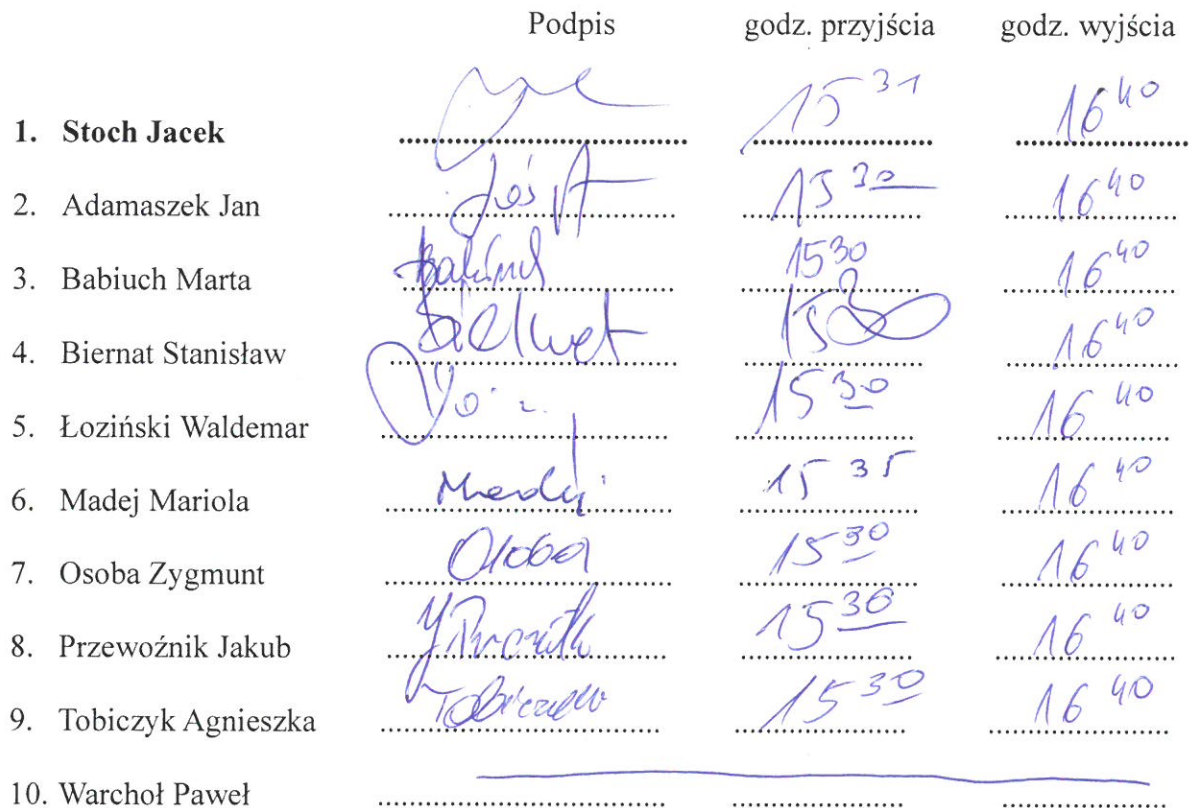 Podpis godz. przyjścia godz. wyjścia
1. Stoch Jacek 15 31 16 40
2. Adamaszek Jan 15 30 16 40
3. Babiuch Marta 15 30 16 40
4. Biernat Stanisław 15 30 16 40
5. Łoziński Waldemar 15 30 16 40
6. Madej Mariola Madej 15 35 16 40
7. Osoba Zygmunt Osoba 15 30 16 40
8. Przewoźnik Jakub 15 30 16 40
9. Tobiczyk Agnieszka 15 30 16 40
10. Warchoł Paweł